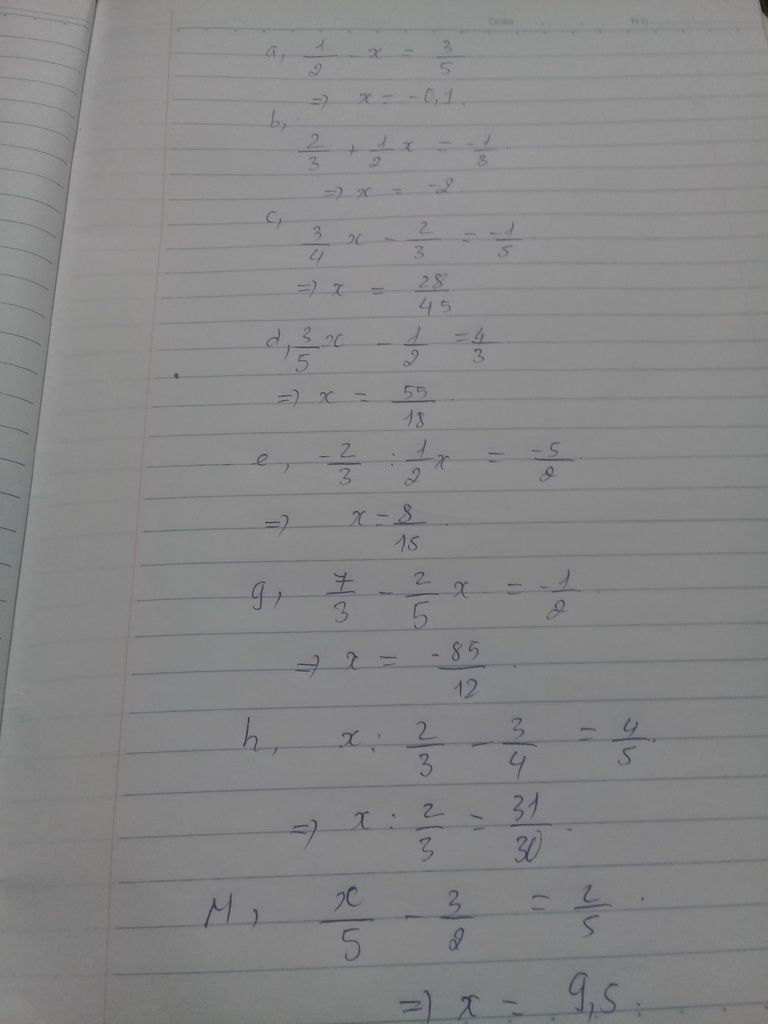 Date No.
a, 1/2 - x = 3/5
=> x = -0,1.
b,
2/3 + 1/2 x = -1/3.
=> x = -2
c,
3/4 x - 2/3 = -1/5
=> x = 28/45
d, 3/5 x - 1/2 = 4/3
=> x = 55/18.
e, -2/3 : 1/2 x = -5/2.
=> x = 8/15.
g, 7/3 - 2/5 x = -1/2.
=> x = -85/12.
h, x : 2/3 - 3/4 = 4/5.
=> x : 2/3 = 31/30.
M, x/5 - 3/2 = 2/5.
=> x = 9,5.